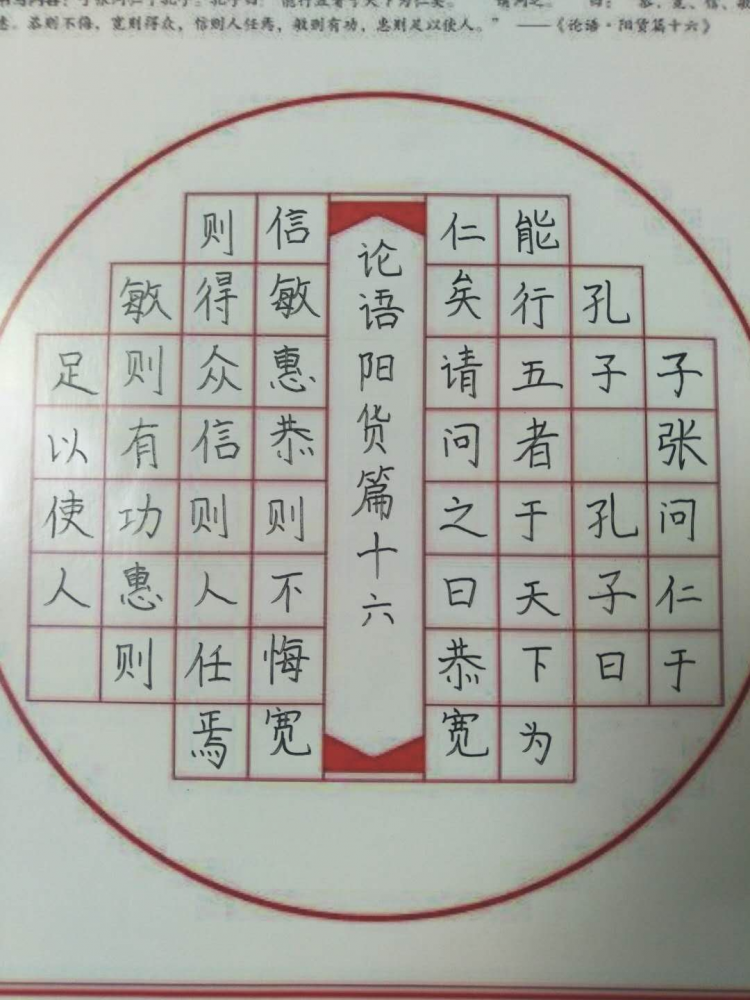 书写内容：子张问仁于孔子。孔子曰："能行五者于天下为仁矣。" "请问之。" 曰："恭、宽、信、敏
恭则不侮、宽则得众，信则人任焉，敏则有功，惠则足以使人。" ——《论语·阳货篇十六》
子张问仁于
孔子 孔子曰
能行五者于天下为
仁矣请问之曰恭宽
论语阳货篇十六
信敏惠恭则不悔宽
则得众信则人任焉
敏则有功惠则
足以使人